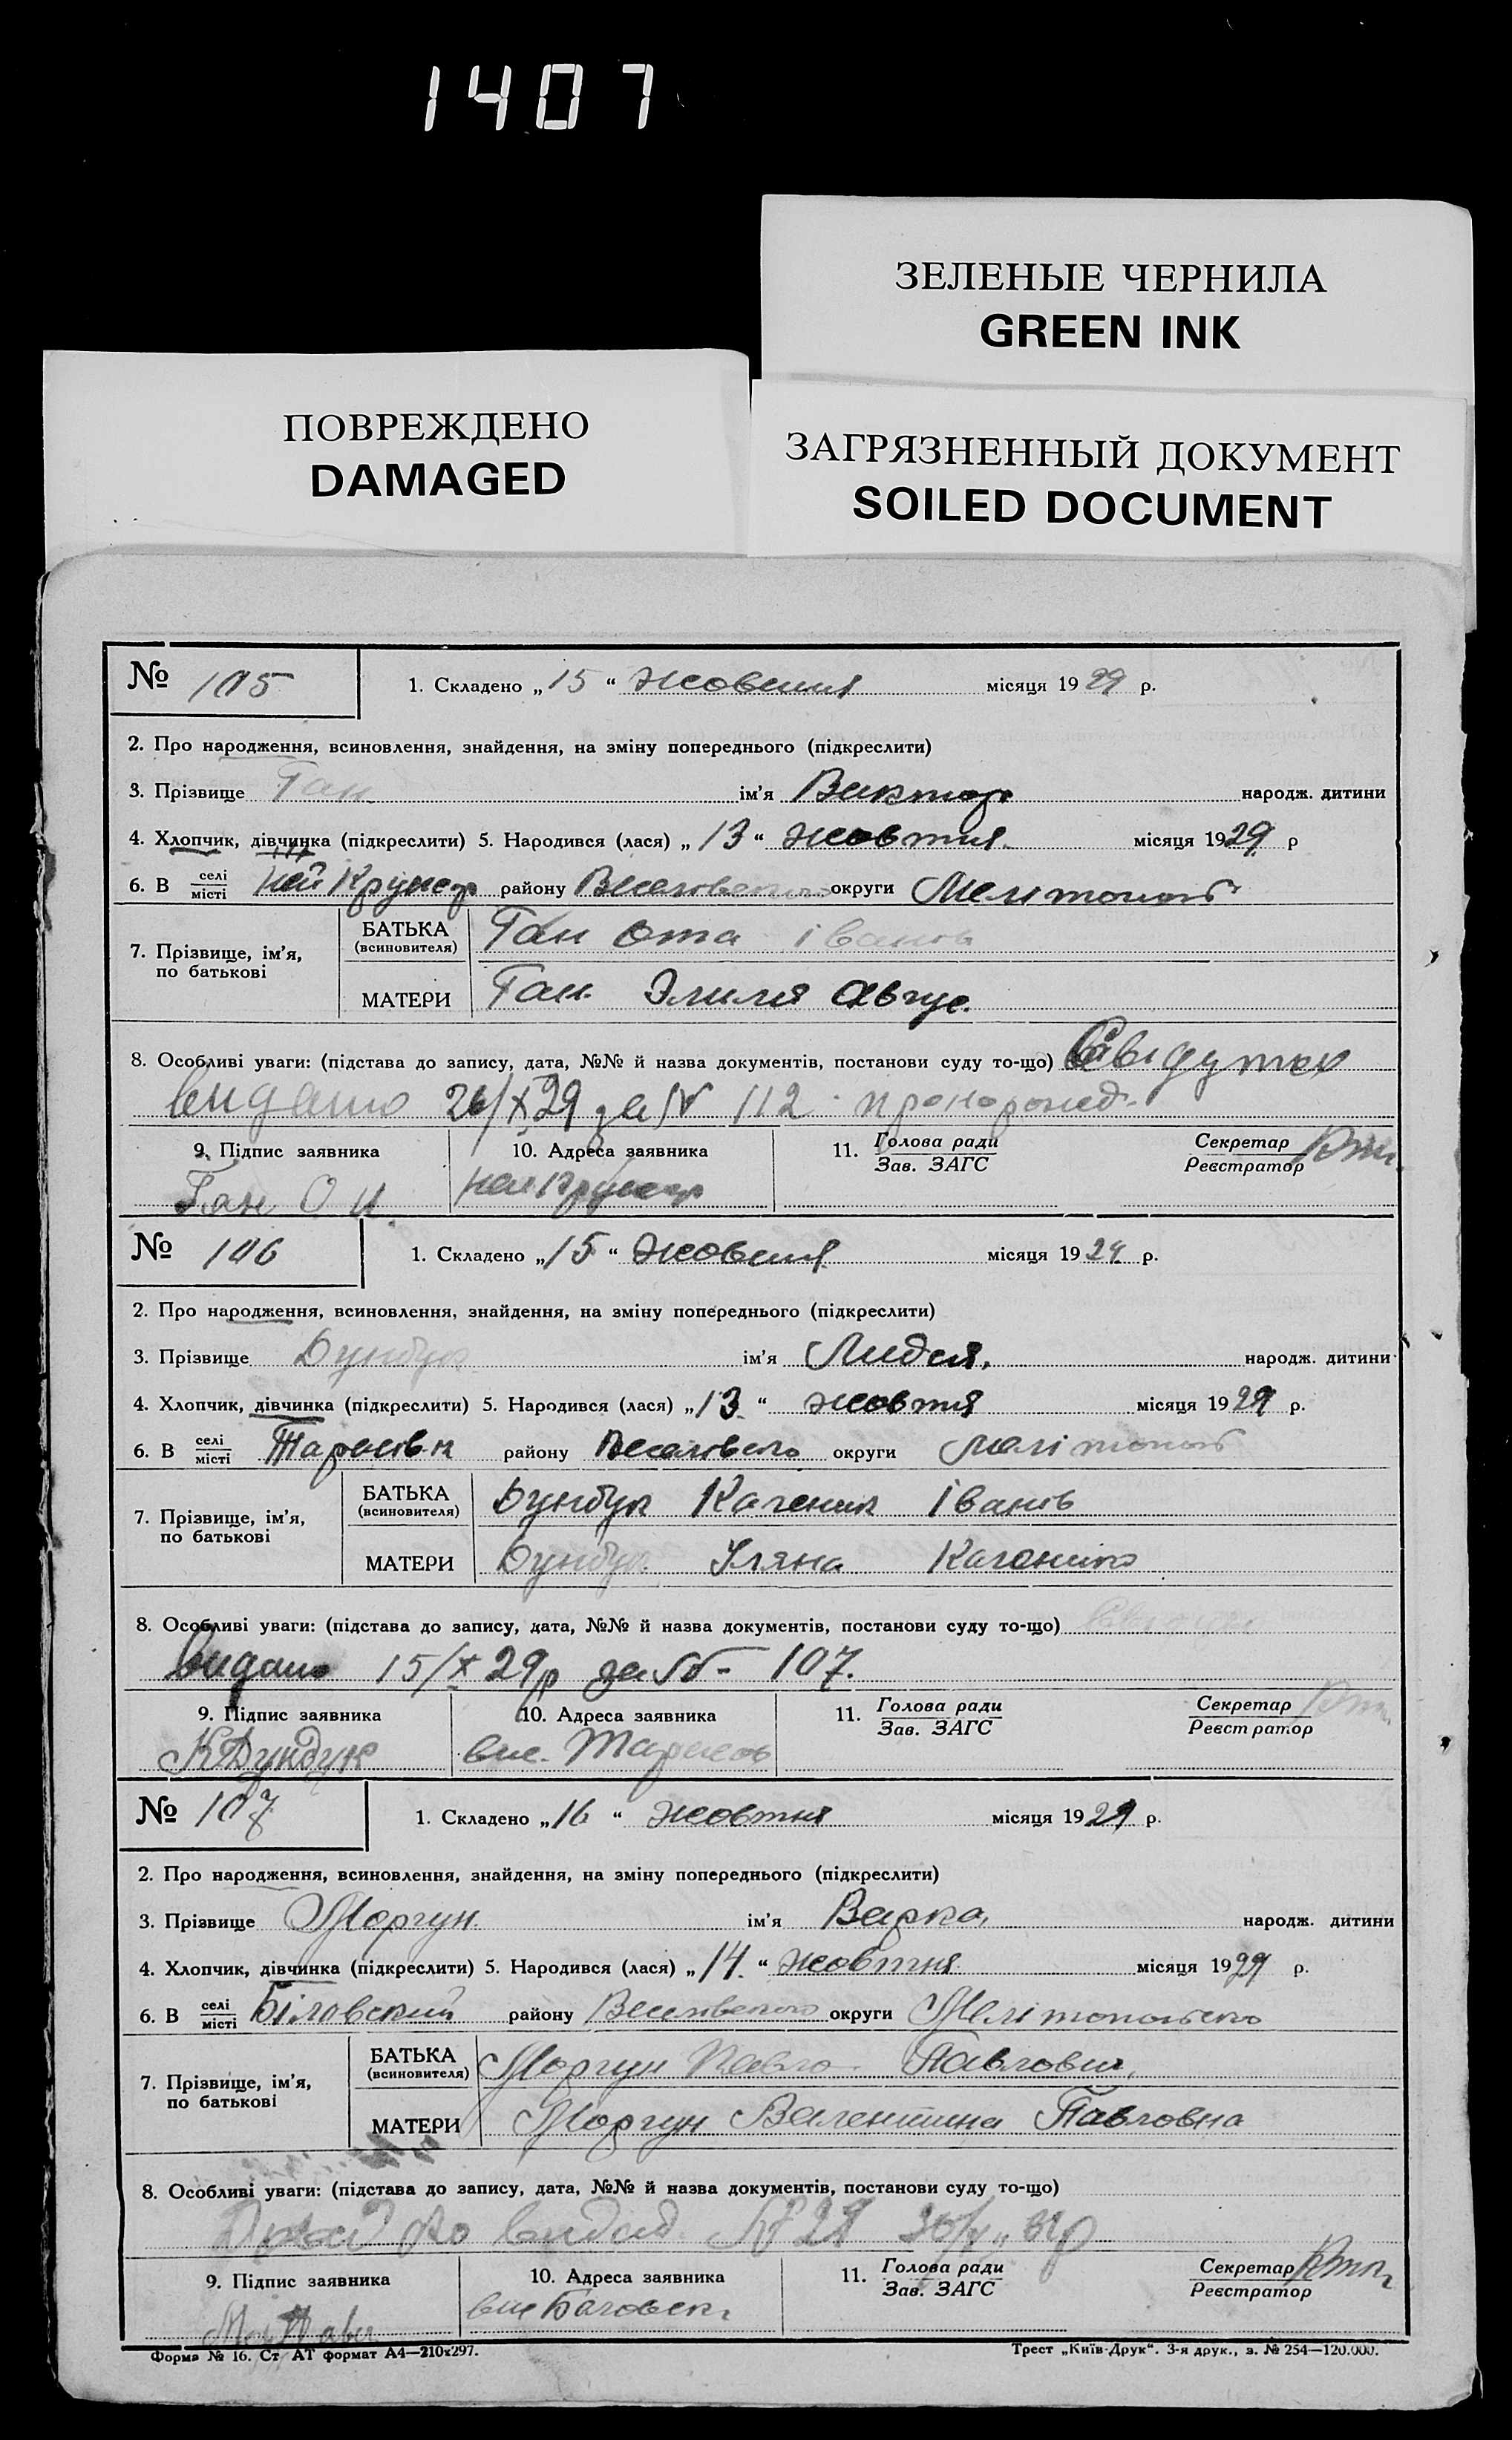 1407
ЗЕЛЕНЫЕ ЧЕРНИЛА
GREEN INK
ПОВРЕЖДЕНО
DAMAGED
ЗАГРЯЗНЕННЫЙ ДОКУМЕНТ
SOILED DOCUMENT
№ 105 1. Складено „15“ жовтня місяця 1929 р.
2. Про народження, всиновлення, знайдення, на зміну попереднього (підкреслити)
3. Прізвище Ган ім’я Виктор народж. дитини
4. Хлопчик, дівчинка (підкреслити) 5. Народився (лася) „13“ жовтня місяця 1929 р
6. В селі/місті району округи
7. Прізвище, ім’я, по батькові БАТЬКА (всиновителя) Ган Ота Іванов
МАТЕРИ Ган Эмилия Авгус.
8. Особливі уваги: (підстава до запису, дата, №№ й назва документів, постанови суду то-що)
видано 26/X 29 за № 112
9. Підпис заявника 10. Адреса заявника 11. Голова ради/Зав. ЗАГС Секретар/Реєстратор
Ган О И
№ 106 1. Складено „15“ жовтня місяця 1929 р.
2. Про народження, всиновлення, знайдення, на зміну попереднього (підкреслити)
3. Прізвище Дундук ім’я Лидия народж. дитини
4. Хлопчик, дівчинка (підкреслити) 5. Народився (лася) „13“ жовтня місяця 1929 р.
6. В селі/місті району округи
7. Прізвище, ім’я, по батькові БАТЬКА (всиновителя) Дундук Іванов
МАТЕРИ Дундук Уляна
8. Особливі уваги: (підстава до запису, дата, №№ й назва документів, постанови суду то-що)
видано 15/X 29р за № 107.
9. Підпис заявника 10. Адреса заявника 11. Голова ради/Зав. ЗАГС Секретар/Реєстратор
К Дундук
№ 107 1. Складено „16“ жовтня місяця 1929 р.
2. Про народження, всиновлення, знайдення, на зміну попереднього (підкреслити)
3. Прізвище Моргун ім’я Варка народж. дитини
4. Хлопчик, дівчинка (підкреслити) 5. Народився (лася) „14“ жовтня місяця 1929 р.
6. В селі/місті району округи Мелітопольско
7. Прізвище, ім’я, по батькові БАТЬКА (всиновителя) Моргун Павло Павлович
МАТЕРИ Моргун Валентина Павловна
8. Особливі уваги: (підстава до запису, дата, №№ й назва документів, постанови суду то-що)
9. Підпис заявника 10. Адреса заявника 11. Голова ради/Зав. ЗАГС Секретар/Реєстратор
Форма № 16. Ст АТ формат А4—210х297. Трест „Київ-Друк“. 3-я друк., з. № 254—120.000.